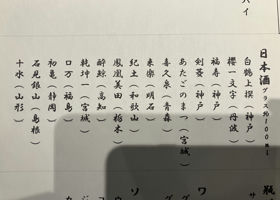 日本酒 グラス約100ml
白鶴上撰（神戸）
櫻一文字（丹波）
福寿（神戸）
剣菱（神戸）
あたごのまつ（宮城）
喜久泉（青森）
来楽（明石）
紀土（和歌山）
鳳凰美田（栃木）
酔鯨（高知）
乾坤一（宮城）
口万（福島）
初亀（静岡）
石見銀山（島根）
十水（山形）